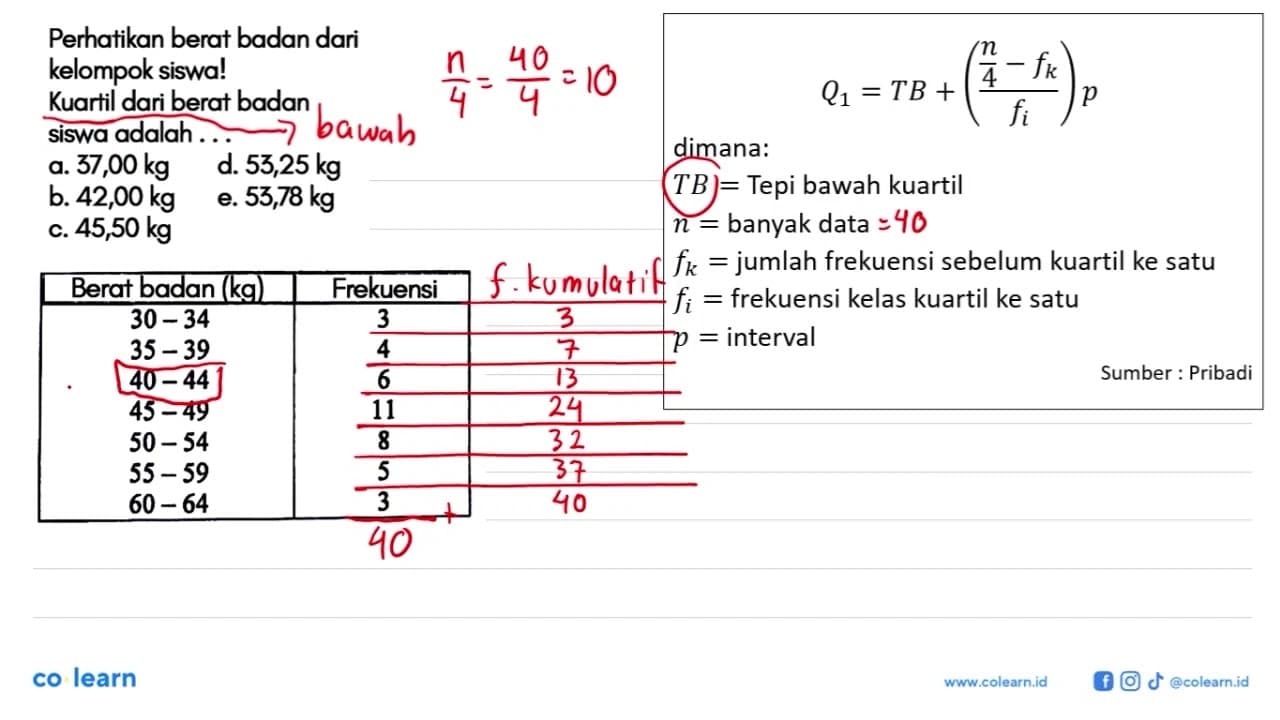 Perhatikan berat badan dari
kelompok siswa!
Kuartil dari berat badan
siswa adalah . . . → bawah
a. 37,00 kg d. 53,25 kg
b. 42,00 kg e. 53,78 kg
c. 45,50 kg
n/4 = 40/4 = 10
Q₁ = TB + ((n/4 − fₖ)/fᵢ) p
dimana:
TB = Tepi bawah kuartil
n = banyak data = 40
fₖ = jumlah frekuensi sebelum kuartil ke satu
fᵢ = frekuensi kelas kuartil ke satu
p = interval
Sumber : Pribadi
Berat badan (kg) Frekuensi f. kumulatif
30 – 34 3 3
35 – 39 4 7
40 – 44 6 13
45 – 49 11 24
50 – 54 8 32
55 – 59 5 37
60 – 64 3 40
+
40
co learn
www.colearn.id
@colearn.id